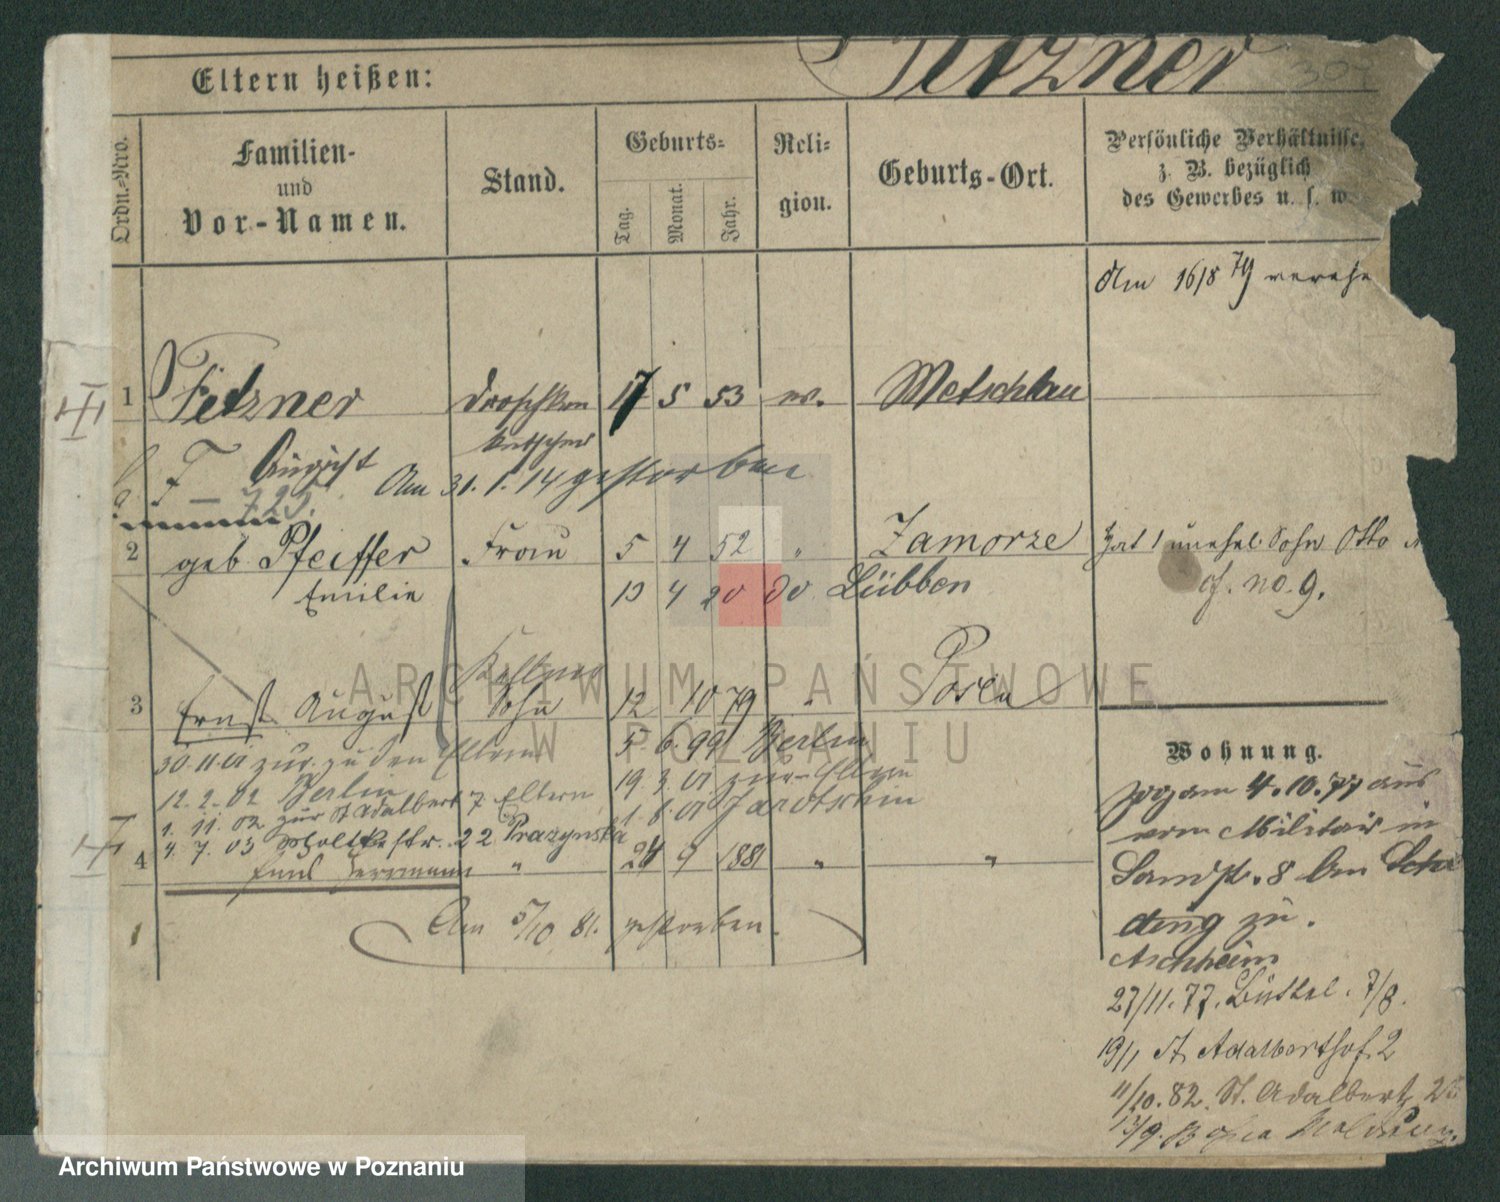 Eltern heißen:
Fetzner
307
Ordn.-Nro.
Familien-
und
Vor-Namen.
Stand.
Geburts-
Tag.
Monat.
Jahr.
Reli-
gion.
Geburts-Ort.
Persönliche Verhältnisse,
z. B. bezüglich
des Gewerbes u. s. w.
Am 16/8 79 verehe
1 Fetzner Droschken 17 5 53 ev. Metschlau
kutscher
August
Am 31. 1. 14 gestorben
F — 725.
2 geb Pfeiffer Frau 5 4 52 " Zamorze
Emilie 13 4 20 do Lübben
Hat 1 unehel. Sohn Otto
cf. no. 9.
Kellner
3 Ernst August Sohn 12 10 79 " Posen
30.11.01 zur. zu den Eltern 5. 6. 99 Berlin
12.2.02 Berlin 19. 3. 01 zur. Eltern
1. 11. 02 zur St Adalbert 7 Eltern 1. 8. 01 Jarotschin
4. 7. 03 Moltkestr. 22 Prazynska
4 Emil Hermann " 24 9 1881 " "
Am 5/10 81. gestorben.
1
Wohnung.
zog am 4.10.77 aus
vom Militair in
Sandstr. 8 bei
ding zu.
Aschheim
27/11. 77. Büttel. 7/8.
19/1 St Adalberthof. 2
11/10. 82. St. Adalbert
13/9.
ARCHIWUM PAŃSTWOWE
W POZNANIU
Archiwum Państwowe w Poznaniu